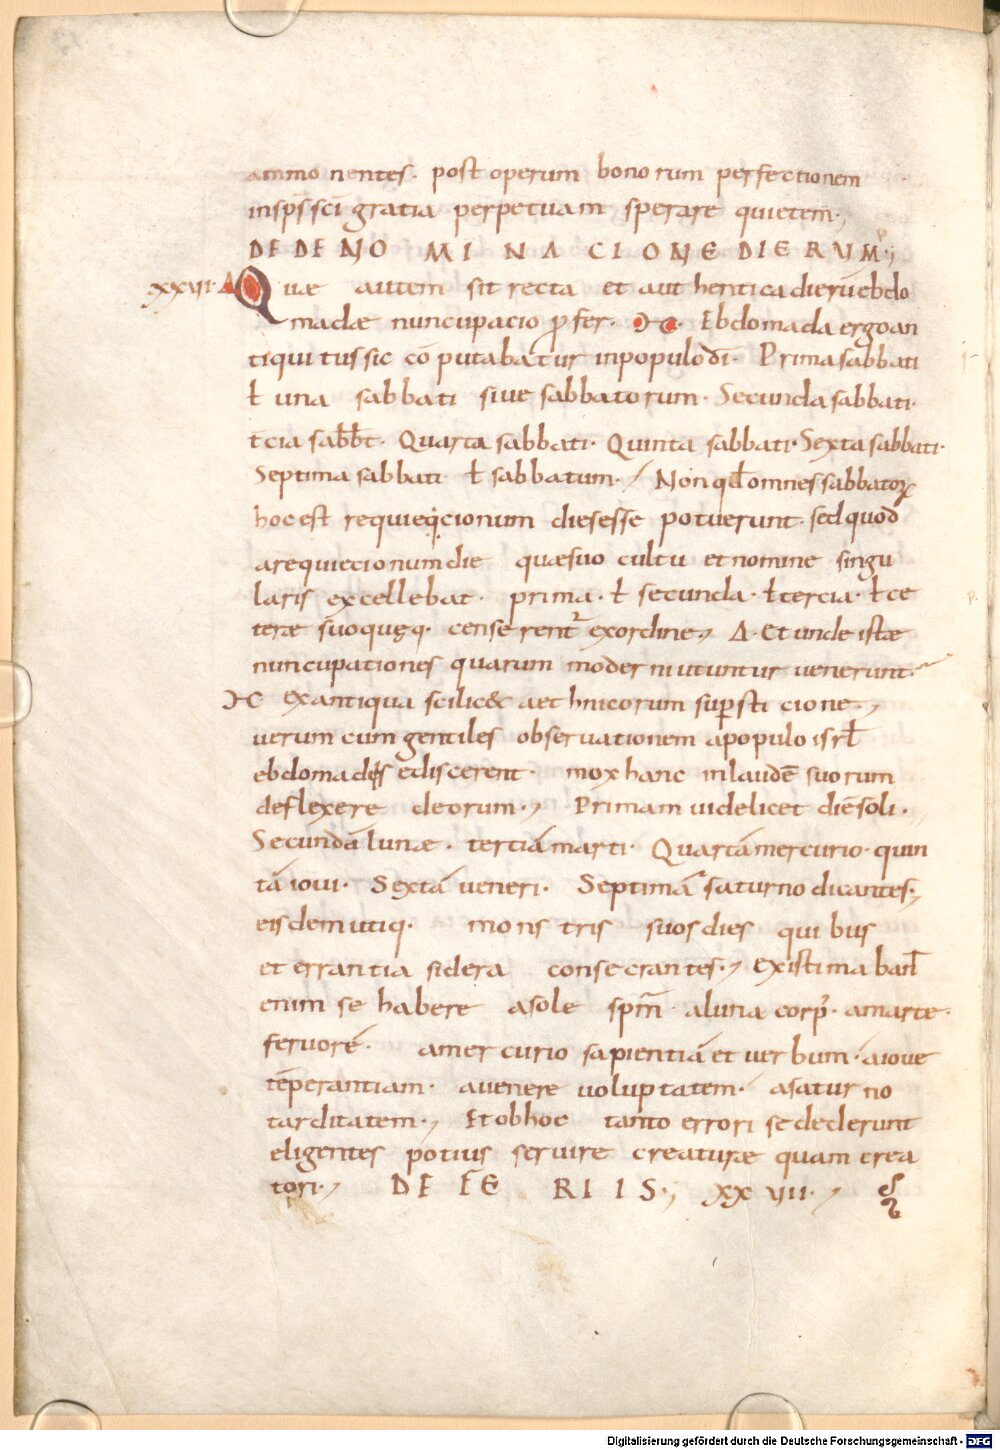 ammonentes. post operum bonorum perfectionem
in sp̄s sc̄i gratia perpetuam sperare quietem;
DE DENOMINACIONE DIERUM;
XXVII. Δ Quae autem sit recta et authentica dierū ebdo
madae nuncupacio p̱fer. M̅. Ebdomada ergo an
tiquitus sic conputabatur in populo dī. Prima sabbati
ł una sabbati siue sabbatorum. Secunda sabbati.
t̄cia sab̄b̄t. Quarta sabbati. Quinta sabbati. Sexta sabbati.
Septima sabbati ł sabbatum. Non qđ omnes sabbatoꝝ
hoc est requiecionum dies esse potuerunt. sed quod
a requiecionum die quae suo cultu et nomine singu
laris excellebat. prima. ł secunda. ł tercia. ł ce
terae suo quęq. censerent᷑ ex ordine; Δ. Et unde istae
nuncupationes quarum moderni utuntur uenerunt.
ex antiqua scilic& aethnicorum sup̱sticione;
uerum cum gentiles obseruationem a populo isrł
ebdomades ediscerent. mox hanc in laudē suorum
deflexere deorum; Primam uidelicet diē soli.
Secundā lunae. tertiā marti. Quartā mercurio. quin
tā ioui. Sextā ueneri. Septimā saturno dicantes;
eisdem utiq. monstris suos dies quibus
et errantia sidera consecrantes; existimabań
enim se habere a sole spm̄. a luna corp᷒. a marte
feruorē. a mercurio sapientiā et uerbum. a ioue
tēperantiam. a uenere uoluptatem. a saturno
tarditatem; Et ob hoc tanto errori se dederunt
eligentes potius seruire creaturae quam crea
tori; DE FERIIS; XXVIII.
Digitalisierung gefördert durch die Deutsche Forschungsgemeinschaft - DFG